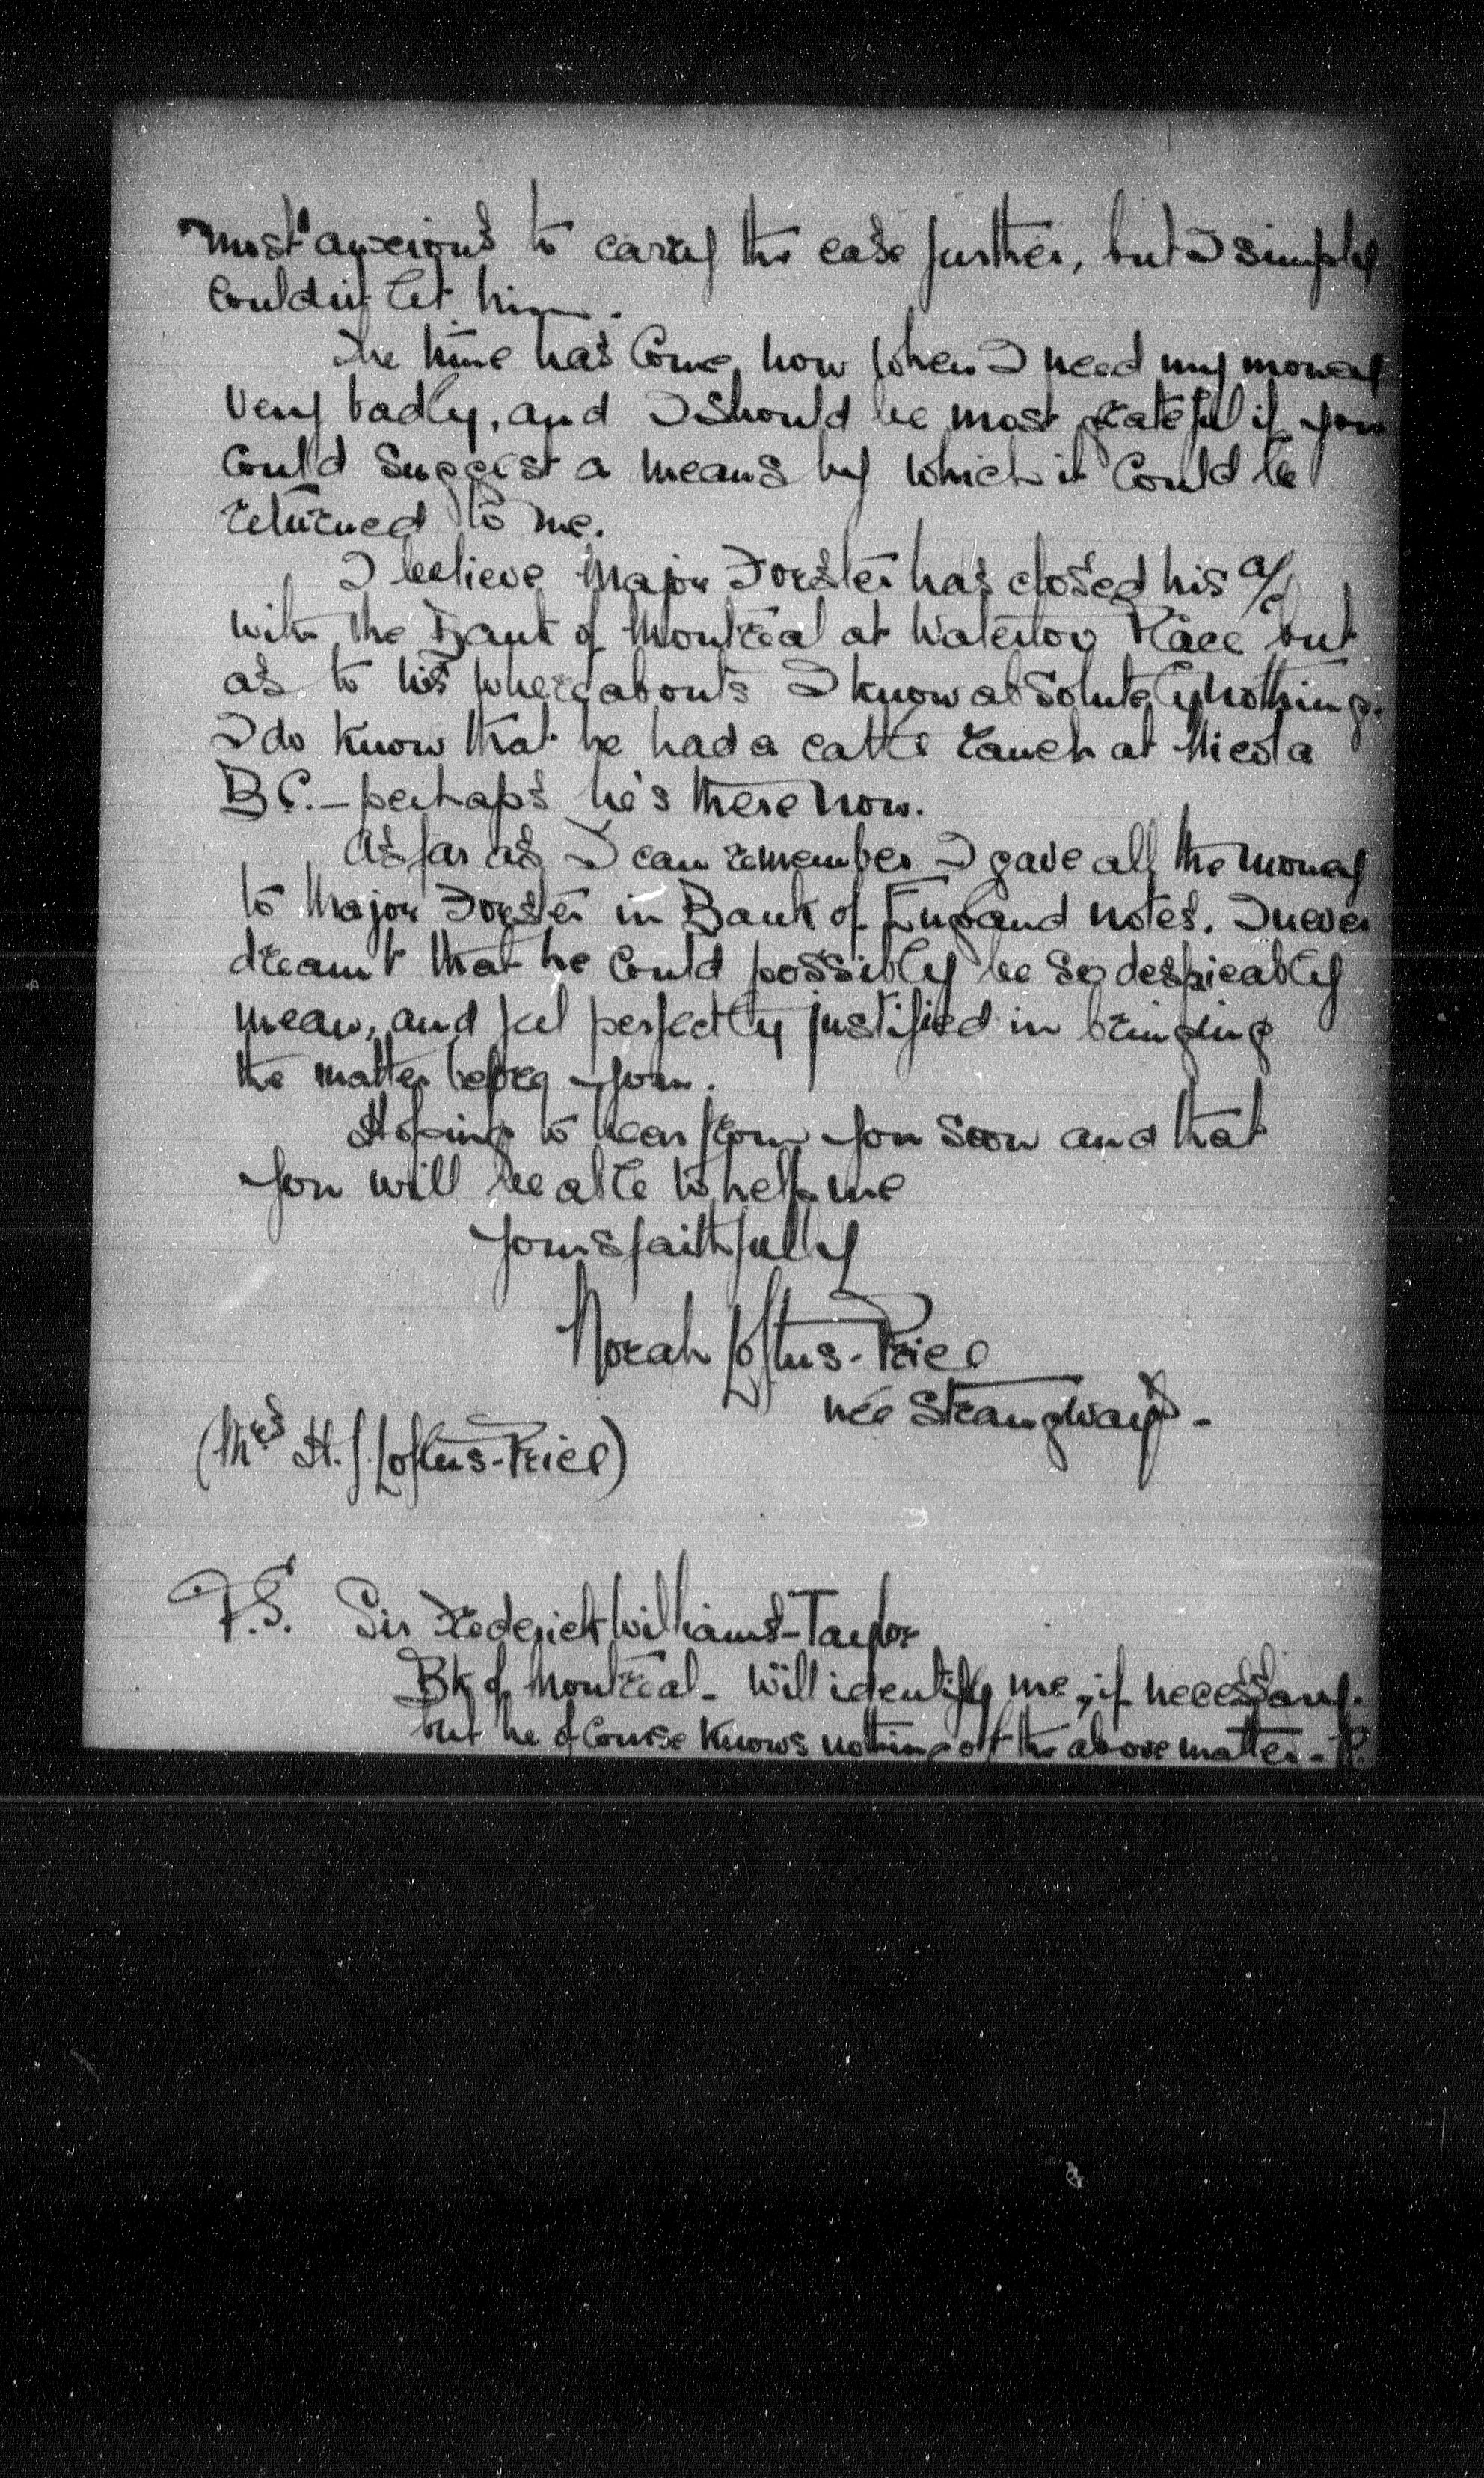 most anxious to carry the case further, but I simply
couldn't let him.
The time has come now when I need my money
very badly, and I should be most grateful if you
could suggest a means by which it could be
returned to me.
I believe Major Forster has closed his a/c
with the Bank of Montreal at Waterloo Place but
as to his whereabouts I know absolutely nothing.
I do know that he had a cattle ranch at Nicola
B.C. - perhaps he's there now.
As far as I can remember I gave all the money
to Major Forster in Bank of England notes. I never
dreamt that he could possibly be so despicably
mean, and feel perfectly justified in bringing
the matter before you.
Hoping to hear from you soon and that
you will be able to help me
Yours faithfully
Norah Loftus-Price
née Strangways -
(Mrs H. J. Loftus-Price)
P.S. Sir Frederick Williams-Taylor
Bk of Montreal - will identify me, if necessary.
but he of course knows nothing of the above matter -